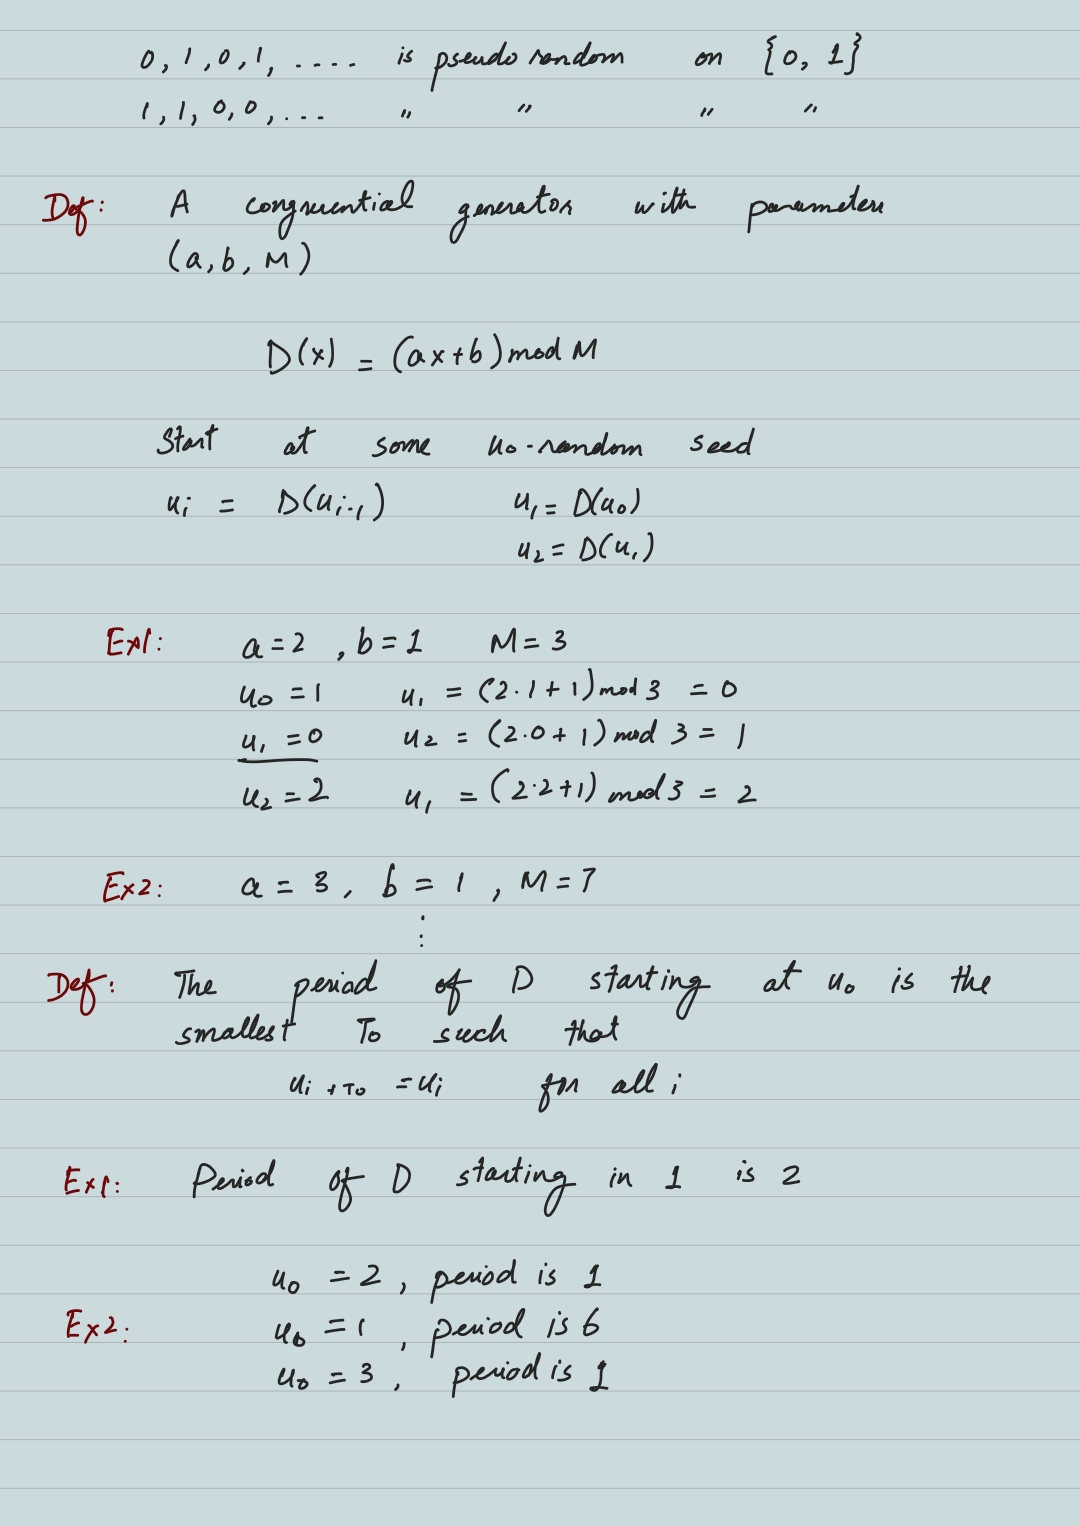 0, 1, 0, 1, .... is pseudo random on {0, 1}
1, 1, 0, 0, ... " " " "
Def: A congruential generator with parameters
(a, b, M)
D(x) = (ax+b) mod M
Start at some u₀-random seed
uᵢ = D(uᵢ₋₁) u₁ = D(u₀)
u₂ = D(u₁)
Ex1: a = 2 , b = 1 M = 3
u₀ = 1 u₁ = (2·1 + 1) mod 3 = 0
u₁ = 0 u₂ = (2·0 + 1) mod 3 = 1
u₂ = 2 u₁ = (2·2+1) mod 3 = 2
Ex2: a = 3, b = 1 , M = 7
⋮
Def: The period of D starting at u₀ is the
smallest T₀ such that
uᵢ₊T₀ = uᵢ for all i
Ex1: Period of D starting in 1 is 2
u₀ = 2 , period is 1
Ex2: u₀ = 1 , period is 6
u₀ = 3 , period is 1